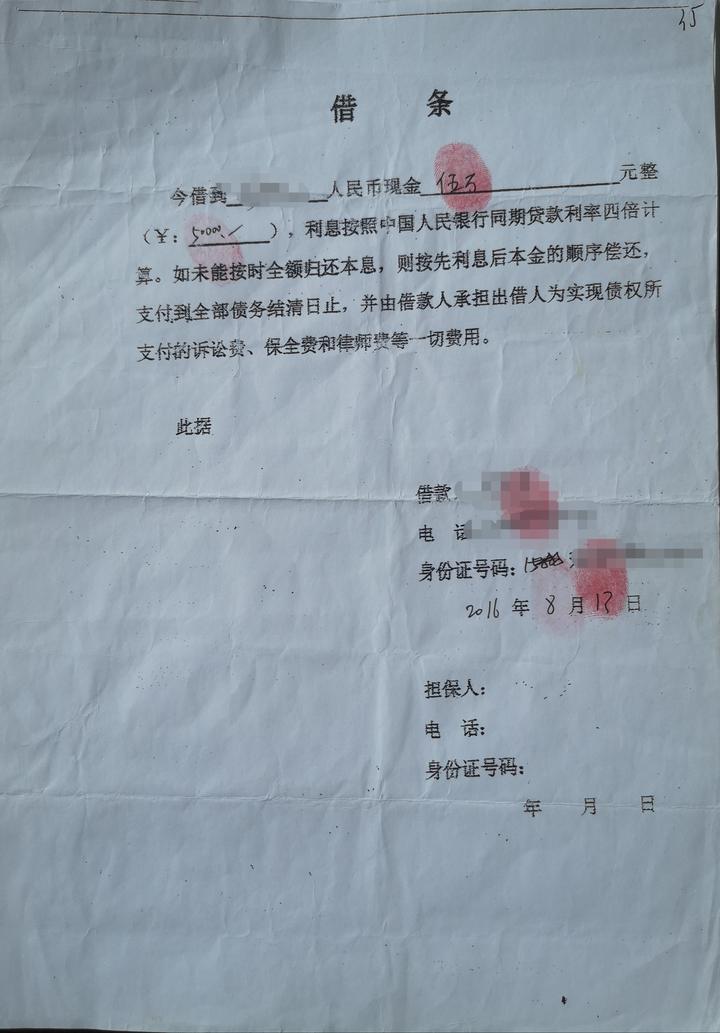 借 条
今借到 人民币现金 伍万 元整
(¥: 50000/ ),利息按照中国人民银行同期贷款利率四倍计
算。如未能按时全额归还本息,则按先利息后本金的顺序偿还,
支付到全部债务结清日止,并由借款人承担出借人为实现债权所
支付的诉讼费、保全费和律师费等一切费用。
此据
借款
电 话
身份证号码:
2016 年 8 月 13 日
担保人:
电 话:
身份证号码:
年 月 日